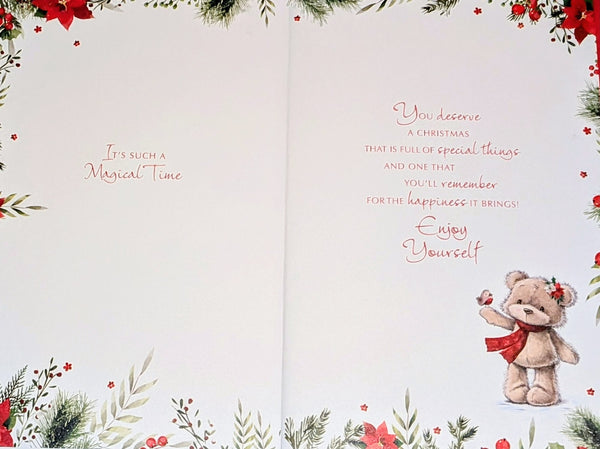 It's such a
Magical Time
You deserve
a Christmas
that is full of special things
and one that
you'll remember
for the happiness it brings!
Enjoy
Yourself